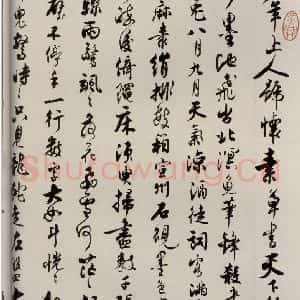 年上人號懷素草書天下
墨池飛出北溟魚筆鋒殺
兔八月九月天氣涼酒徒詞客滿
麻素絹排數箱宣州石硯墨色
醉後倚繩床須臾掃盡數千
驟雨驚颯〻落花飛雪何茫〻
壁不停手一行數字大如斗怳〻
鬼驚時〻只見龍蛇走左盤
Shufawang.Cn